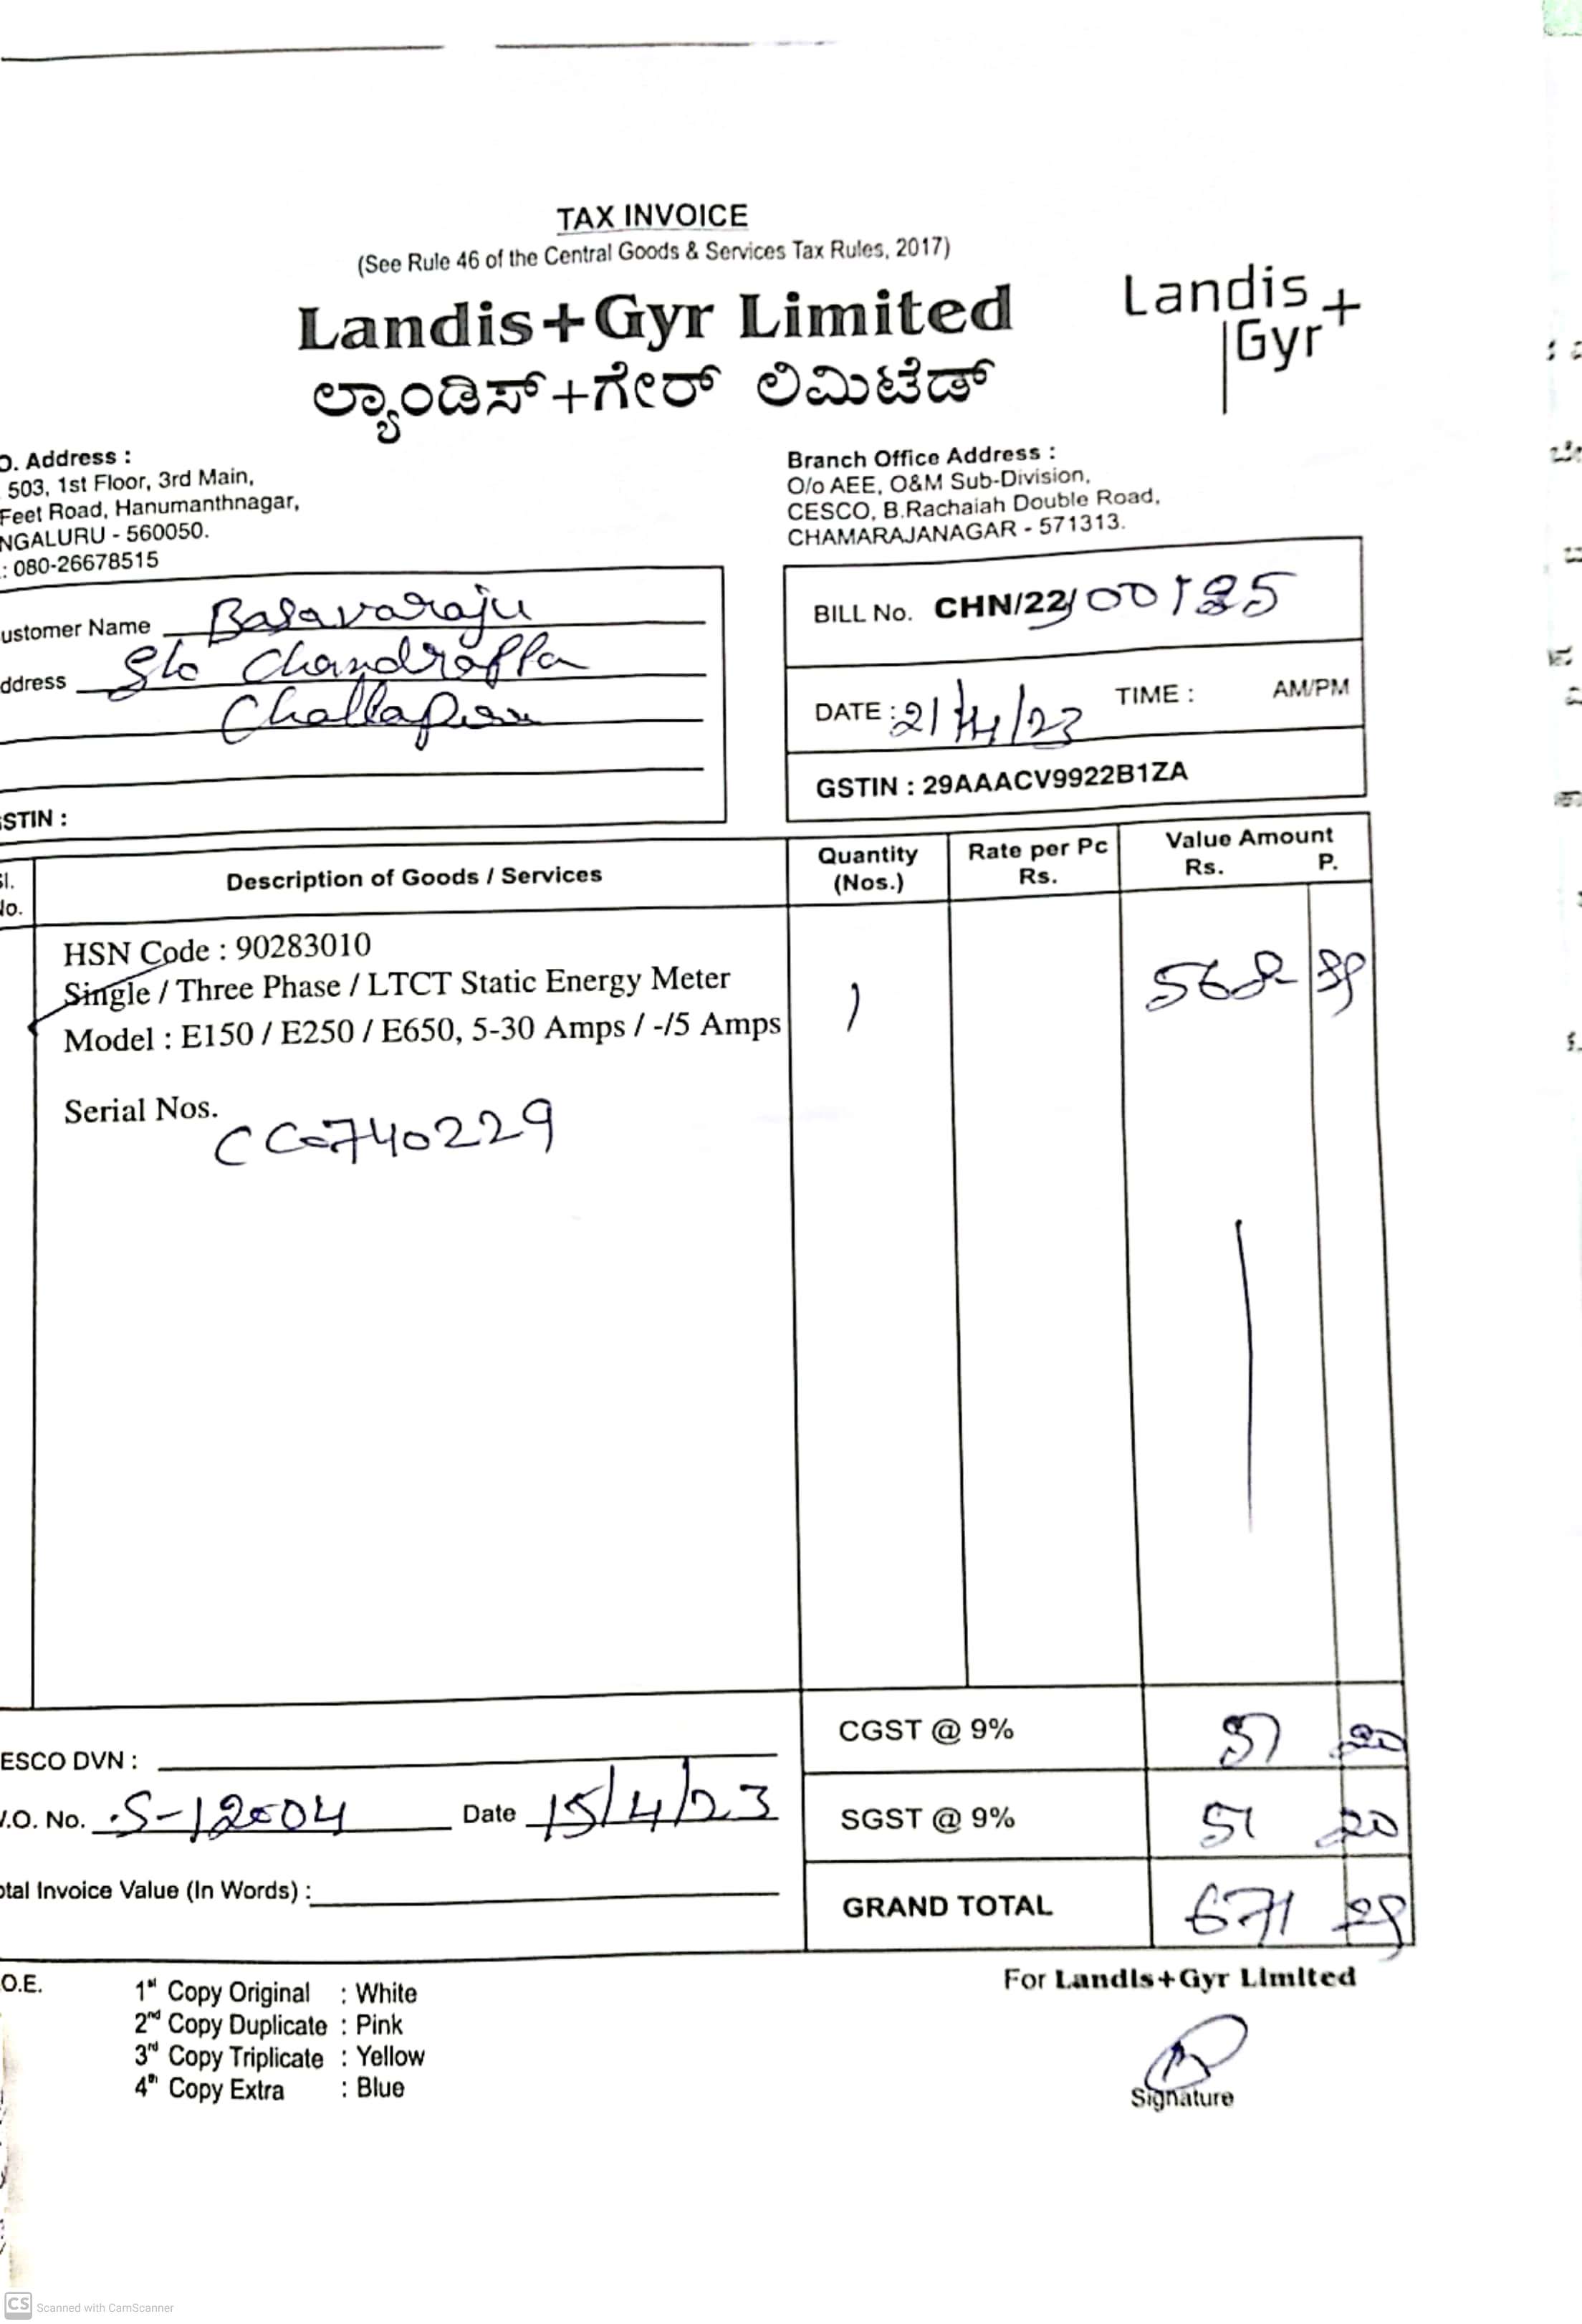 TAX INVOICE
(See Rule 46 of the Central Goods & Services Tax Rules, 2017)
Landis+Gyr Limited
Landis
Gyr+
ಲ್ಯಾಂಡಿಸ್+ಗೇರ್ ಲಿಮಿಟೆಡ್
O. Address :
503, 1st Floor, 3rd Main,
Feet Road, Hanumanthnagar,
NGALURU - 560050.
: 080-26678515
Branch Office Address :
O/o AEE, O&M Sub-Division,
CESCO, B.Rachaiah Double Road,
CHAMARAJANAGAR - 571313.
ustomer Name Basavaraju
ddress S/o Chandrappa
STIN :
BILL No. CHN/22/00185
DATE : 21/4/23 TIME : AM/PM
GSTIN : 29AAACV9922B1ZA
Sl. No. Description of Goods / Services Quantity (Nos.) Rate per Pc Rs. Value Amount Rs. P.
HSN Code : 90283010
Single / Three Phase / LTCT Static Energy Meter 1 568 39
Model : E150 / E250 / E650, 5-30 Amps / -/5 Amps
Serial Nos.
CC0740229
CGST @ 9% 51 20
ESCO DVN :
.O. No. S-12004 Date 15/4/23
SGST @ 9% 51 20
otal Invoice Value (In Words) :
GRAND TOTAL 671 29
O.E.
1st Copy Original : White
2nd Copy Duplicate : Pink
3rd Copy Triplicate : Yellow
4th Copy Extra : Blue
For Landis+Gyr Limited
Signature
CS Scanned with CamScanner